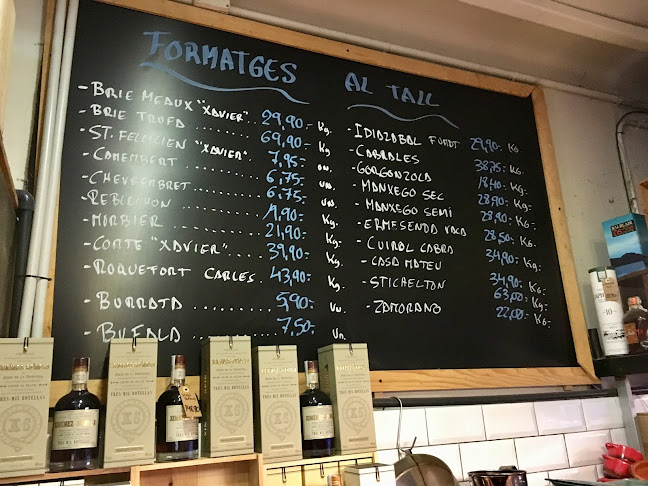 FORMATGES AL TALL
- BRIE MEAUX "XAVIER" 29,90.- Kg.
- BRIE TRUFA ........ 69,90.- Kg
- ST. FELICIEN "XAVIER" 7,95.- un.
- CAMEMBERT ........ 6,75.- un.
- CHEVREMBRET ........ 6.75.- un.
- REBLOCHON ........ 19,90.- Kg.
- MORBIER ........ 21,90.- Kg.
- COMTE "XAVIER" ........ 39,90.- Kg.
- ROQUEFORT CARLES. 43,90.- Kg.
- BURRATA ........ 5,90.- Un.
- BUFALA ........ 7,50.- Un.
- IDIAZABAL FUMAT 29,90.- KG
- CABRALES 38,75.- KG.
- GORGONZOLA 18,40.- KG.
- MANXEGO SEC 28,90.- KG.
- MANXEGO SEMÍ 28,90.- KG.
- ERMESENDA VACA 28,50.- KG.
- CUIROL CABRA 34,90.- KG.
- CASA MATEU 34,90.- KG.
- STICHELTON 63,00.- KG.
- ZAMORANO 22,00.- KG.
XG
TRES MIL BOTELLAS